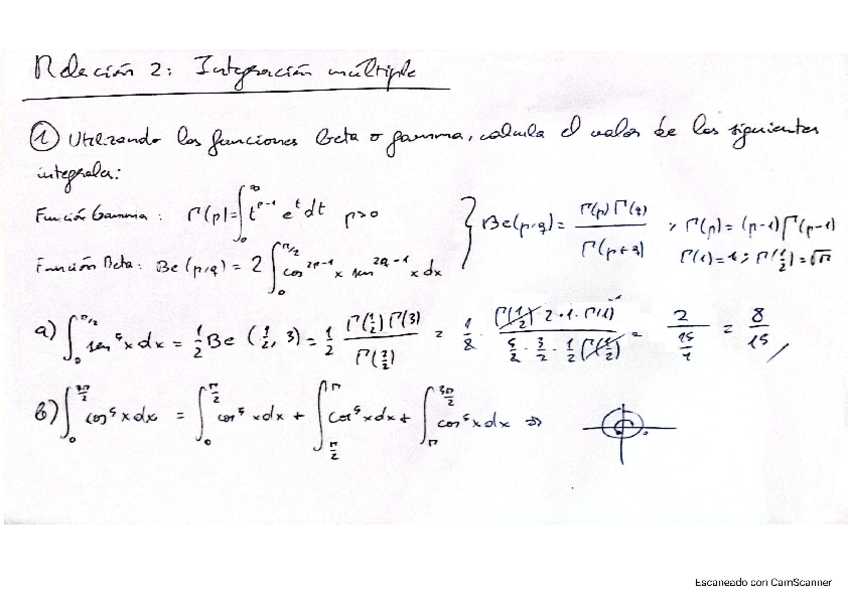 Relación 2: Integración múltiple
① Utilizando las funciones beta o gamma, calcula el valor de las siguientes
integrales:
Función Gamma: Γ(p)=∫₀^∞ t^(p-1) e^t dt p>0
Función Beta: Be(p,q) = 2∫₀^(π/2) cos^(2p-1) x sen^(2q-1) x dx
} Be(p,q) = Γ(p)Γ(q)/Γ(p+q) ; Γ(p)=(p-1)Γ(p-1)
Γ(1)=1; Γ(1/2)=√π
a) ∫₀^(π/2) sen⁵x dx = 1/2 Be(1/2, 3) = 1/2 Γ(1/2)Γ(3)/Γ(7/2) = 1/2 · Γ(1/2) 2·1·Γ(1)/(5/2 · 3/2 · 1/2 Γ(1/2)) = 2/(15/4) = 8/15
b) ∫₀^(3π/2) cos⁵x dx = ∫₀^(π/2) cos⁵x dx + ∫_(π/2)^π cos⁵x dx + ∫_π^(3π/2) cos⁵x dx ⇒
Escaneado con CamScanner